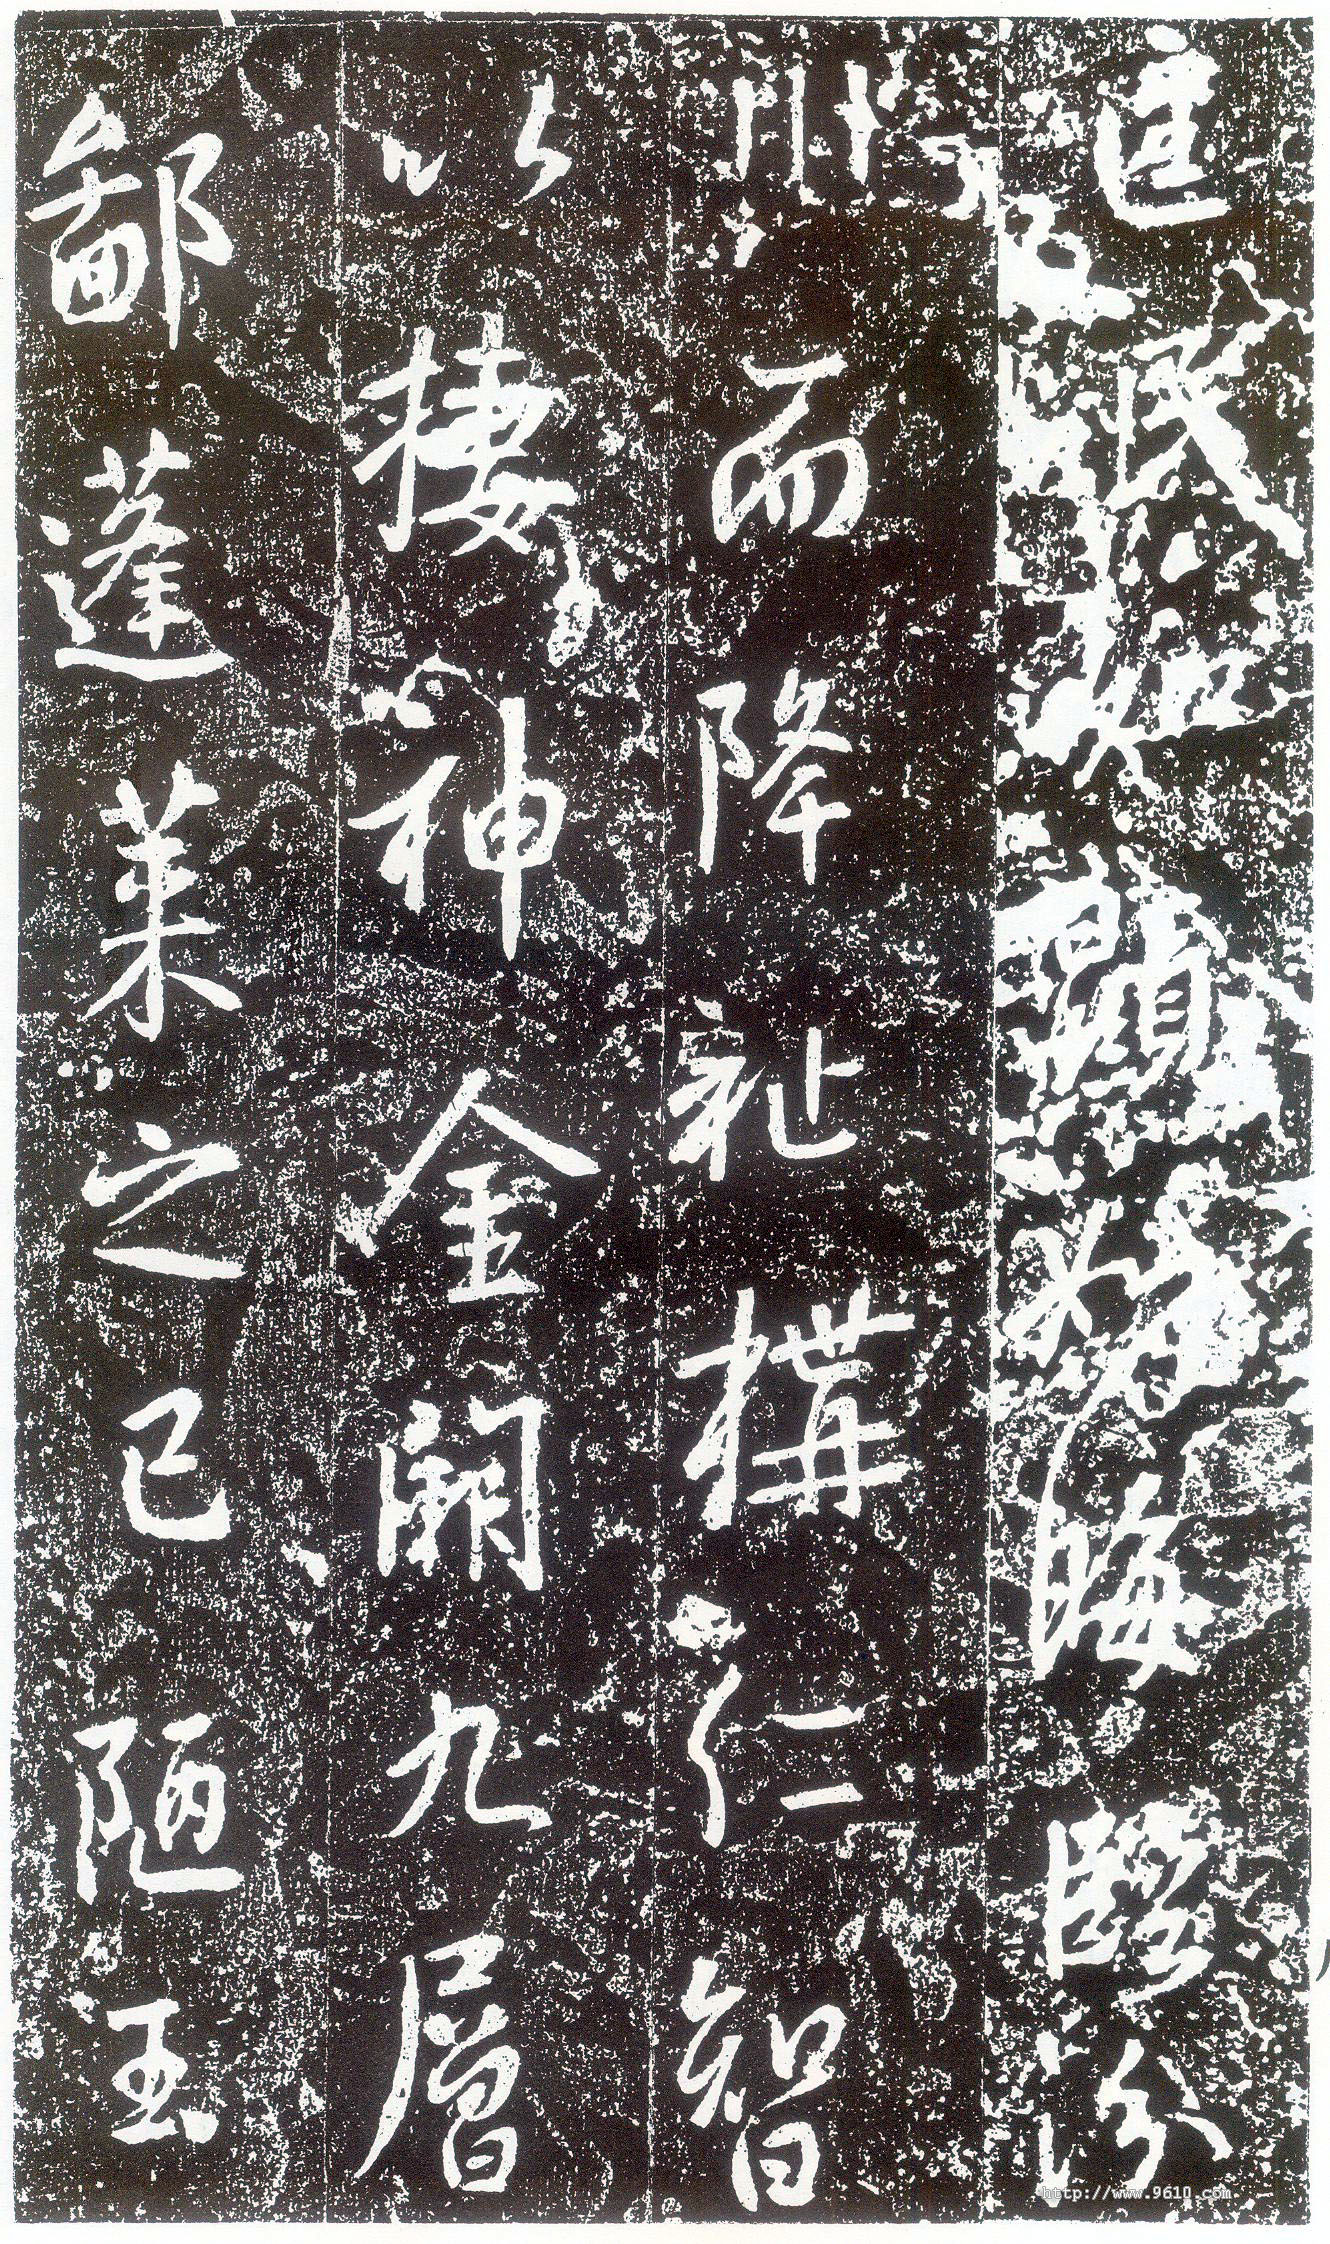 匡民如顯如晦臨汾
川而降祉構仁智
以棲神金闕九層
鄙蓬萊之已陋玉
http://www.9610.com